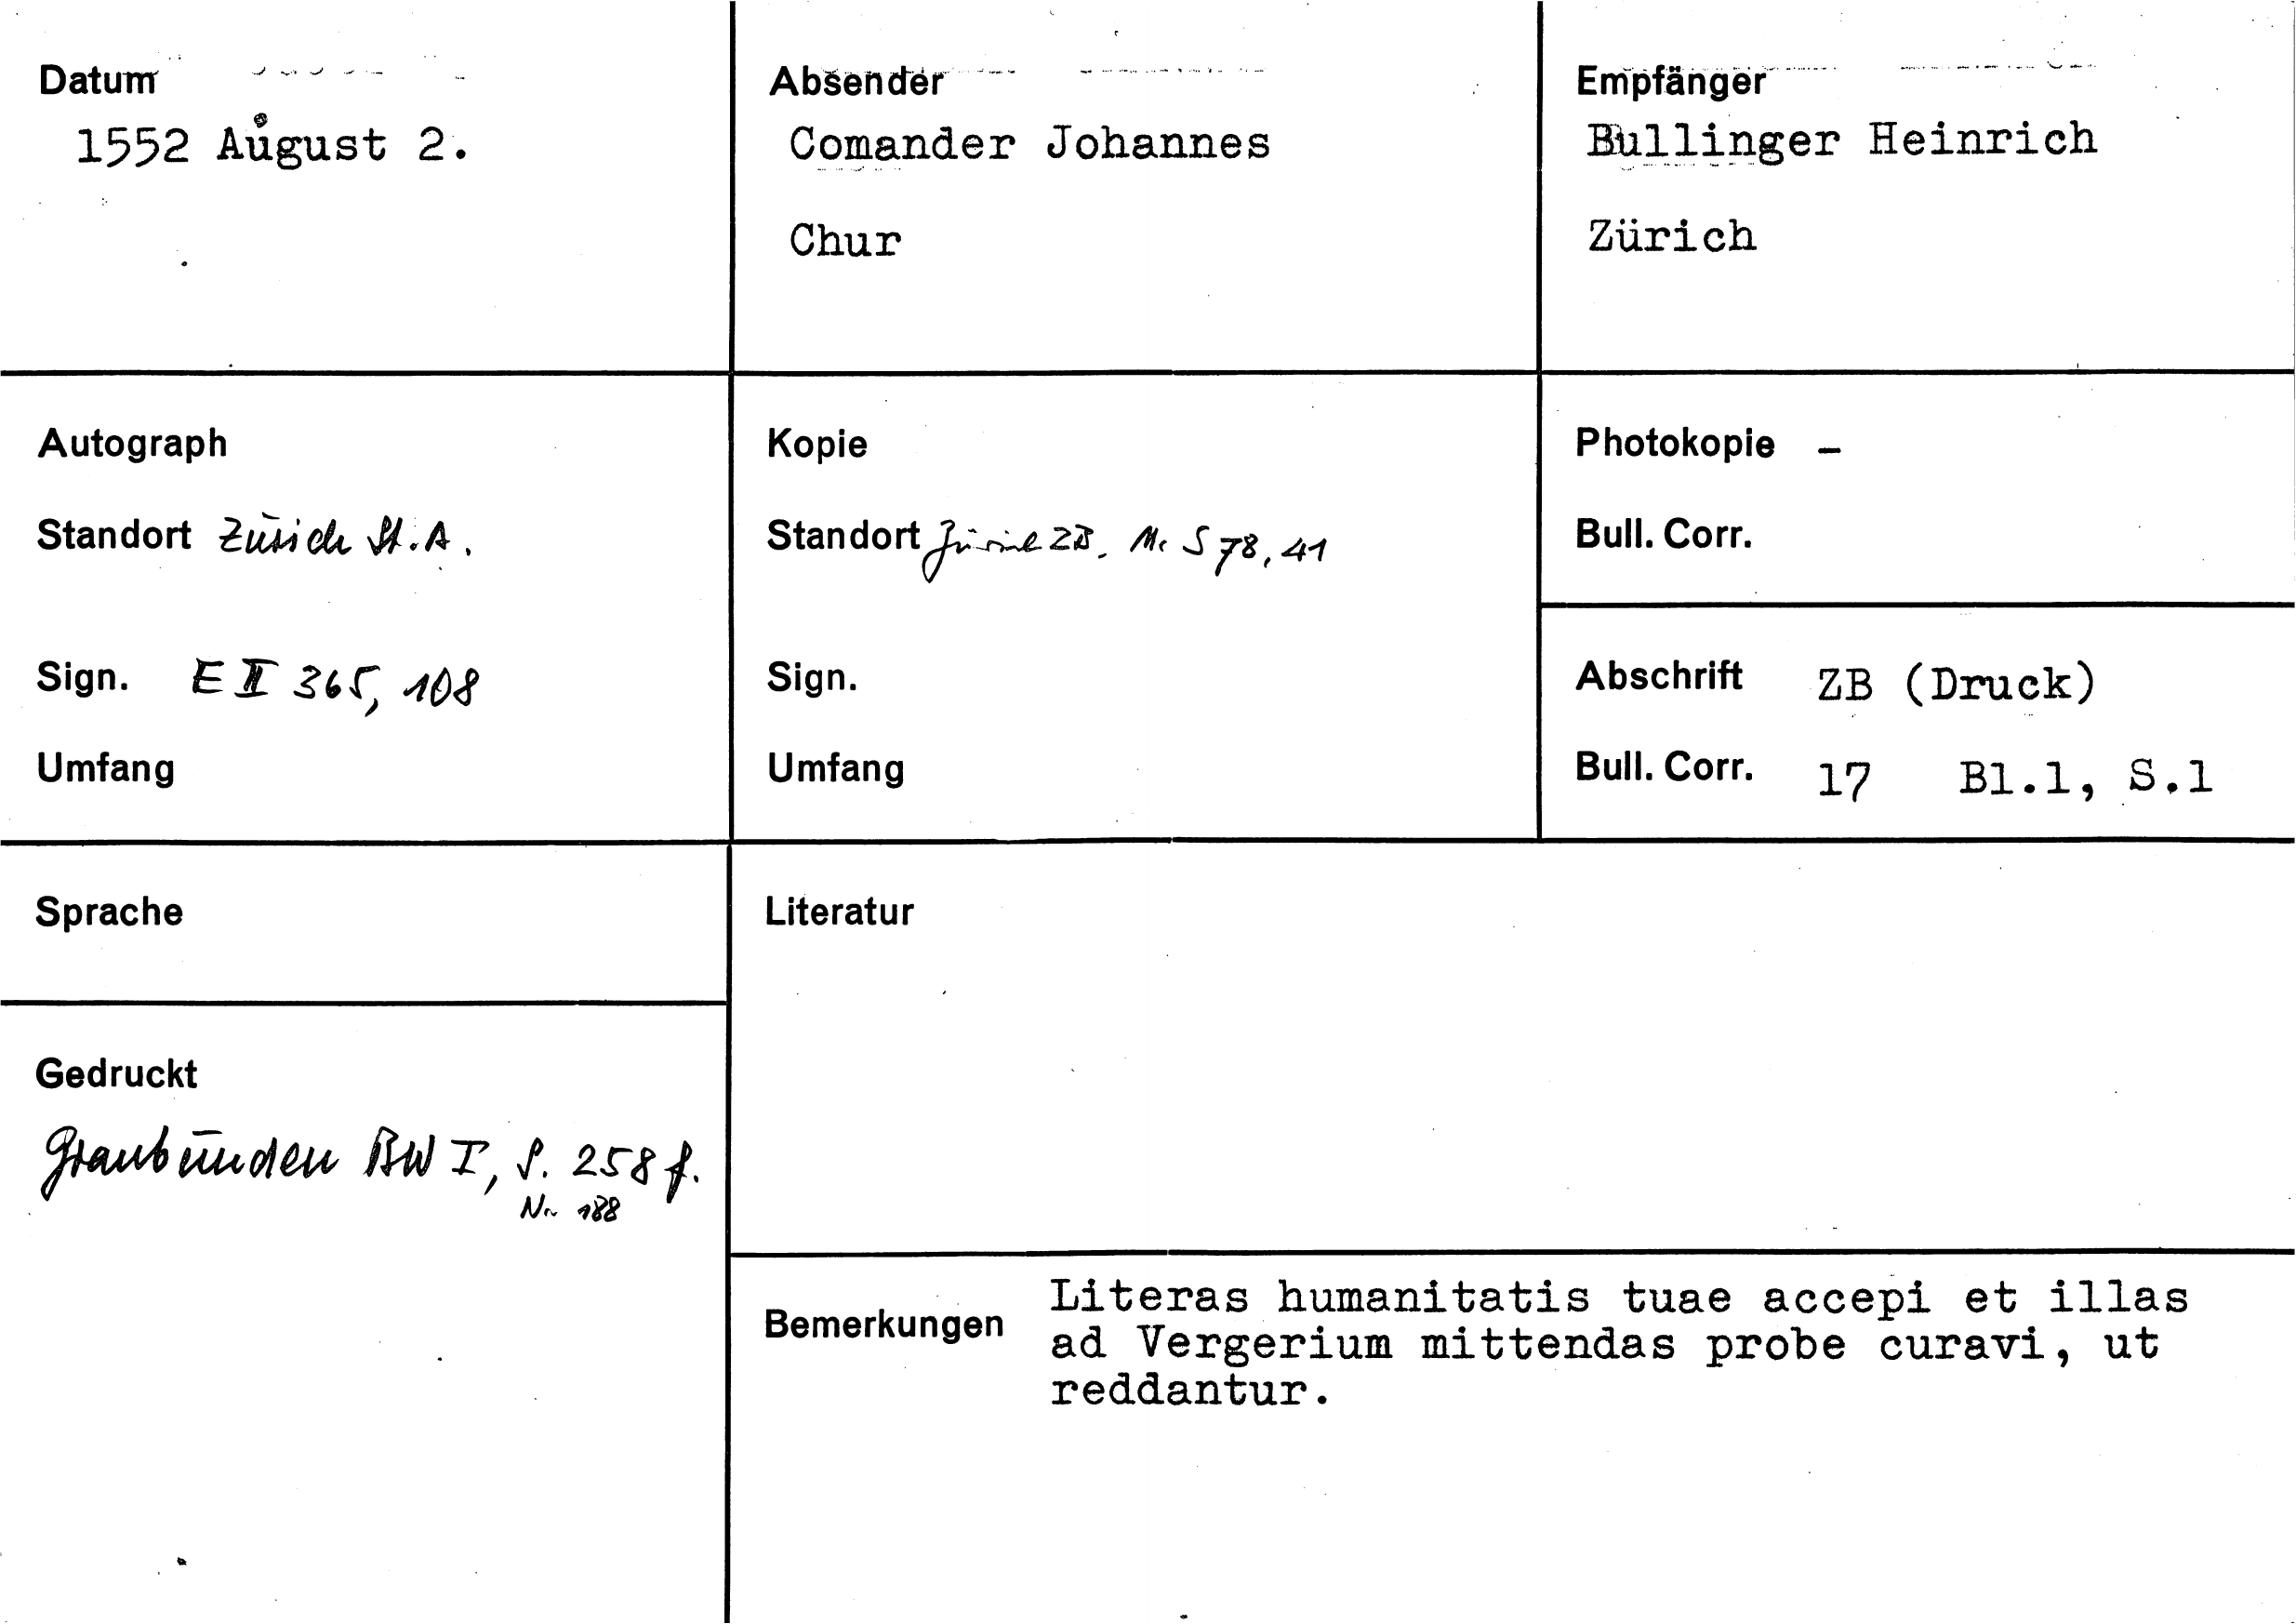 Datum
1552 August 2.
Absender
Comander Johannes
Chur
Empfänger
Bullinger Heinrich
Zürich
Autograph
Standort Zürich St. A.
Sign. E II 365, 108
Umfang
Kopie
Standort Zürich ZB. Ms S 78, 41
Sign.
Umfang
Photokopie -
Bull. Corr.
Abschrift ZB (Druck)
Bull. Corr. 17 Bl.1, S.1
Sprache
Gedruckt
Graubünden BW I, S. 258 f.
Nr. 188
Literatur
Bemerkungen
Literas humanitatis tuae accepi et illas
ad Vergerium mittendas probe curavi, ut
reddantur.